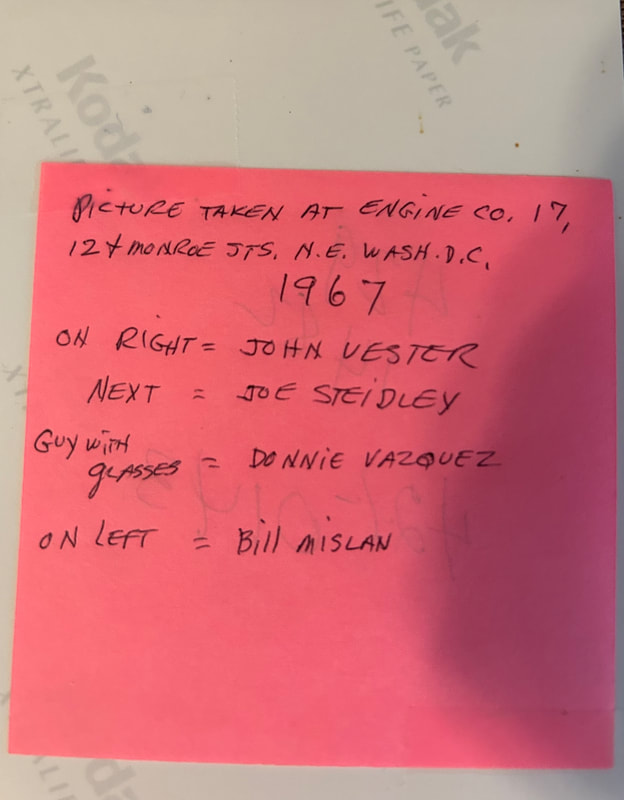 Kodak
XTRALIFE PAPER
Kodak
XTRALI
PICTURE TAKEN AT ENGINE CO. 17,
12 + MONROE STS. N.E. WASH.D.C.
1967
ON RIGHT = JOHN VESTER
NEXT = JOE STEIDLEY
GUY WITH
GLASSES = DONNIE VAZQUEZ
ON LEFT = Bill MISLAN